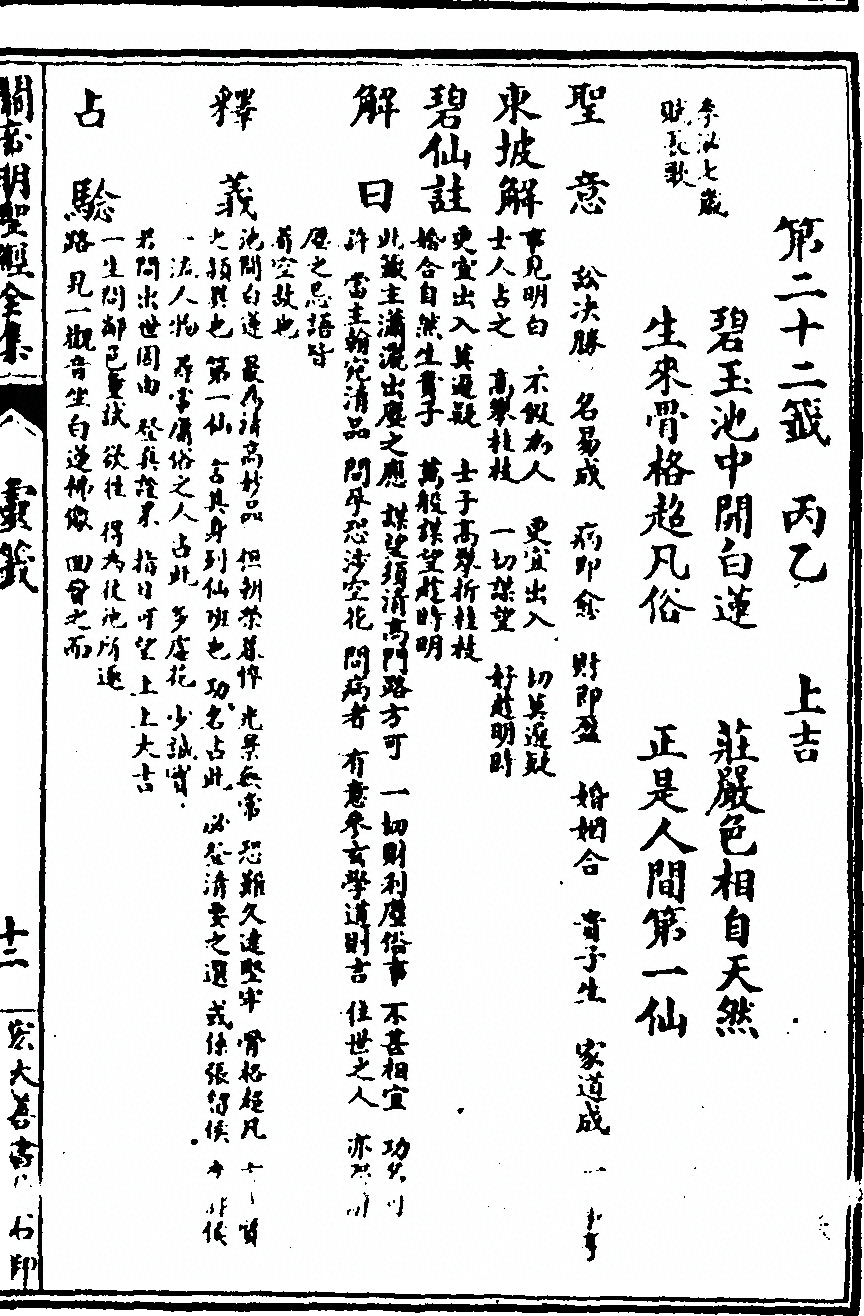 第二十二籤　丙乙　上吉
碧玉池中開白蓮　莊嚴色相自天然
生來骨格超凡俗　正是人間第一仙
李泌七歲
賦長歌
聖意　訟決勝　名易成　病即愈　財即盈　婚姻合　貴子生　家道成
東坡解
事見明白　不假為人　更宜出入　切莫遲疑
士人占之　高攀桂枝　一切謀望　好趁明時
碧仙註
更宜出入莫遲疑　士子高攀折桂枝
婚合自然生貴子　萬般謀望趁時明
解曰
此籤主瀟灑出塵之應　謀望須清高門路方可　一切財利塵俗事　不甚相宜　功名可
許　當主翰苑清品　問孕恐涉空花　問病者　有意參玄學道則吉　住世之人　亦
塵之忌語皆
若空故也
釋義
池開白蓮　最為清高妙品　但朝榮暮悴　光景無常　恐難久遠堅牢　骨格超凡
之類異也　第一仙　言其身到仙班也　功名占此　必登清要之選　或係張留侯
一流人物　尋常庸俗之人占此　多虛花　少誠實
若問出世因由　登真證果　指日可望　上上大吉
占驗
一生問鄰邑童試　欲往　得為後池所逐
路見一觀音坐白蓮佛像　回
關帝明聖經全集
靈籤
十二
宏大善書
印